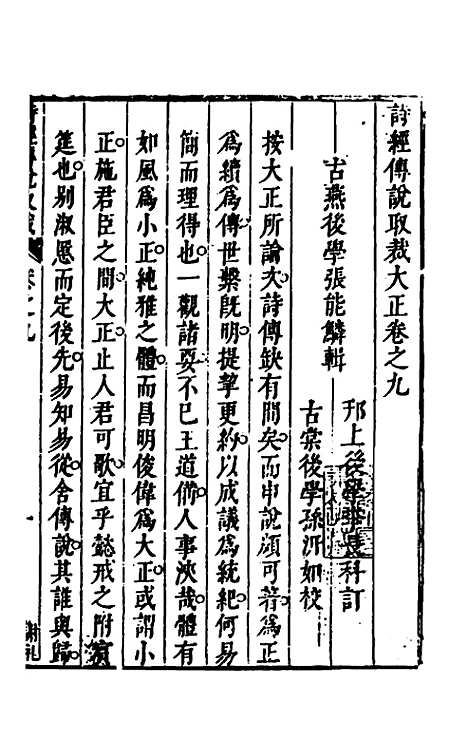 詩經傳說取裁大正卷之九
古燕後學張能鱗輯
邗上後學 科訂
古棠後學孫汧如校
按大正所論次詩傳缺有間矣而申說頗可著為正
為續為傳世槩旣明提挈更約以成議為統紀何易
簡而理得也一觀諸 不已王道備人事浹哉體有
如風為小正純雅之體而昌明俊偉為大正或謂小
正施君臣之間大正止人君可歌宜乎懿戒之附賔
筵也别淑慝而定後先易知易從舍傳說其誰與歸
卷之九
一